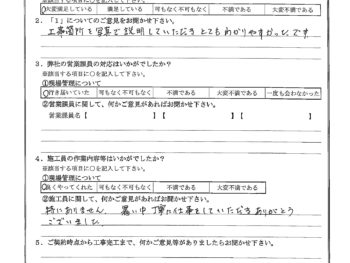 ※該当する項目に○を記入して下さい。
大変満足している 満足している 可もなく不可もなく 不満である 大変不満である
2．「1」についてのご意見をお聞かせ下さい。
工事箇所を写真で説明していただきとてもわかりやすかったです
3．弊社の営業課員の対応はいかがでしたか？
※該当する項目に○を記入して下さい。
①現場管理について
行き届いていた 可もなく不可もなく 不満である 大変不満である 一度も会わなかった
②営業課員に関して、何かご意見があればお聞かせ下さい。
営業課員名【 】【 】【
4．施工員の作業内容等はいかがでしたか？
※該当する項目に○を記入して下さい。
①現場管理について
良くやってくれた 可もなく不可もなく 不満である 大変不満である
②施工員に関して、何かご意見があればお聞かせ下さい。
特にありません。暑い中丁寧に仕事をしていただきありがとう
ございました。
5．ご契約時点から工事完了まで、何かご意見等がありましたらお聞かせ下さい。